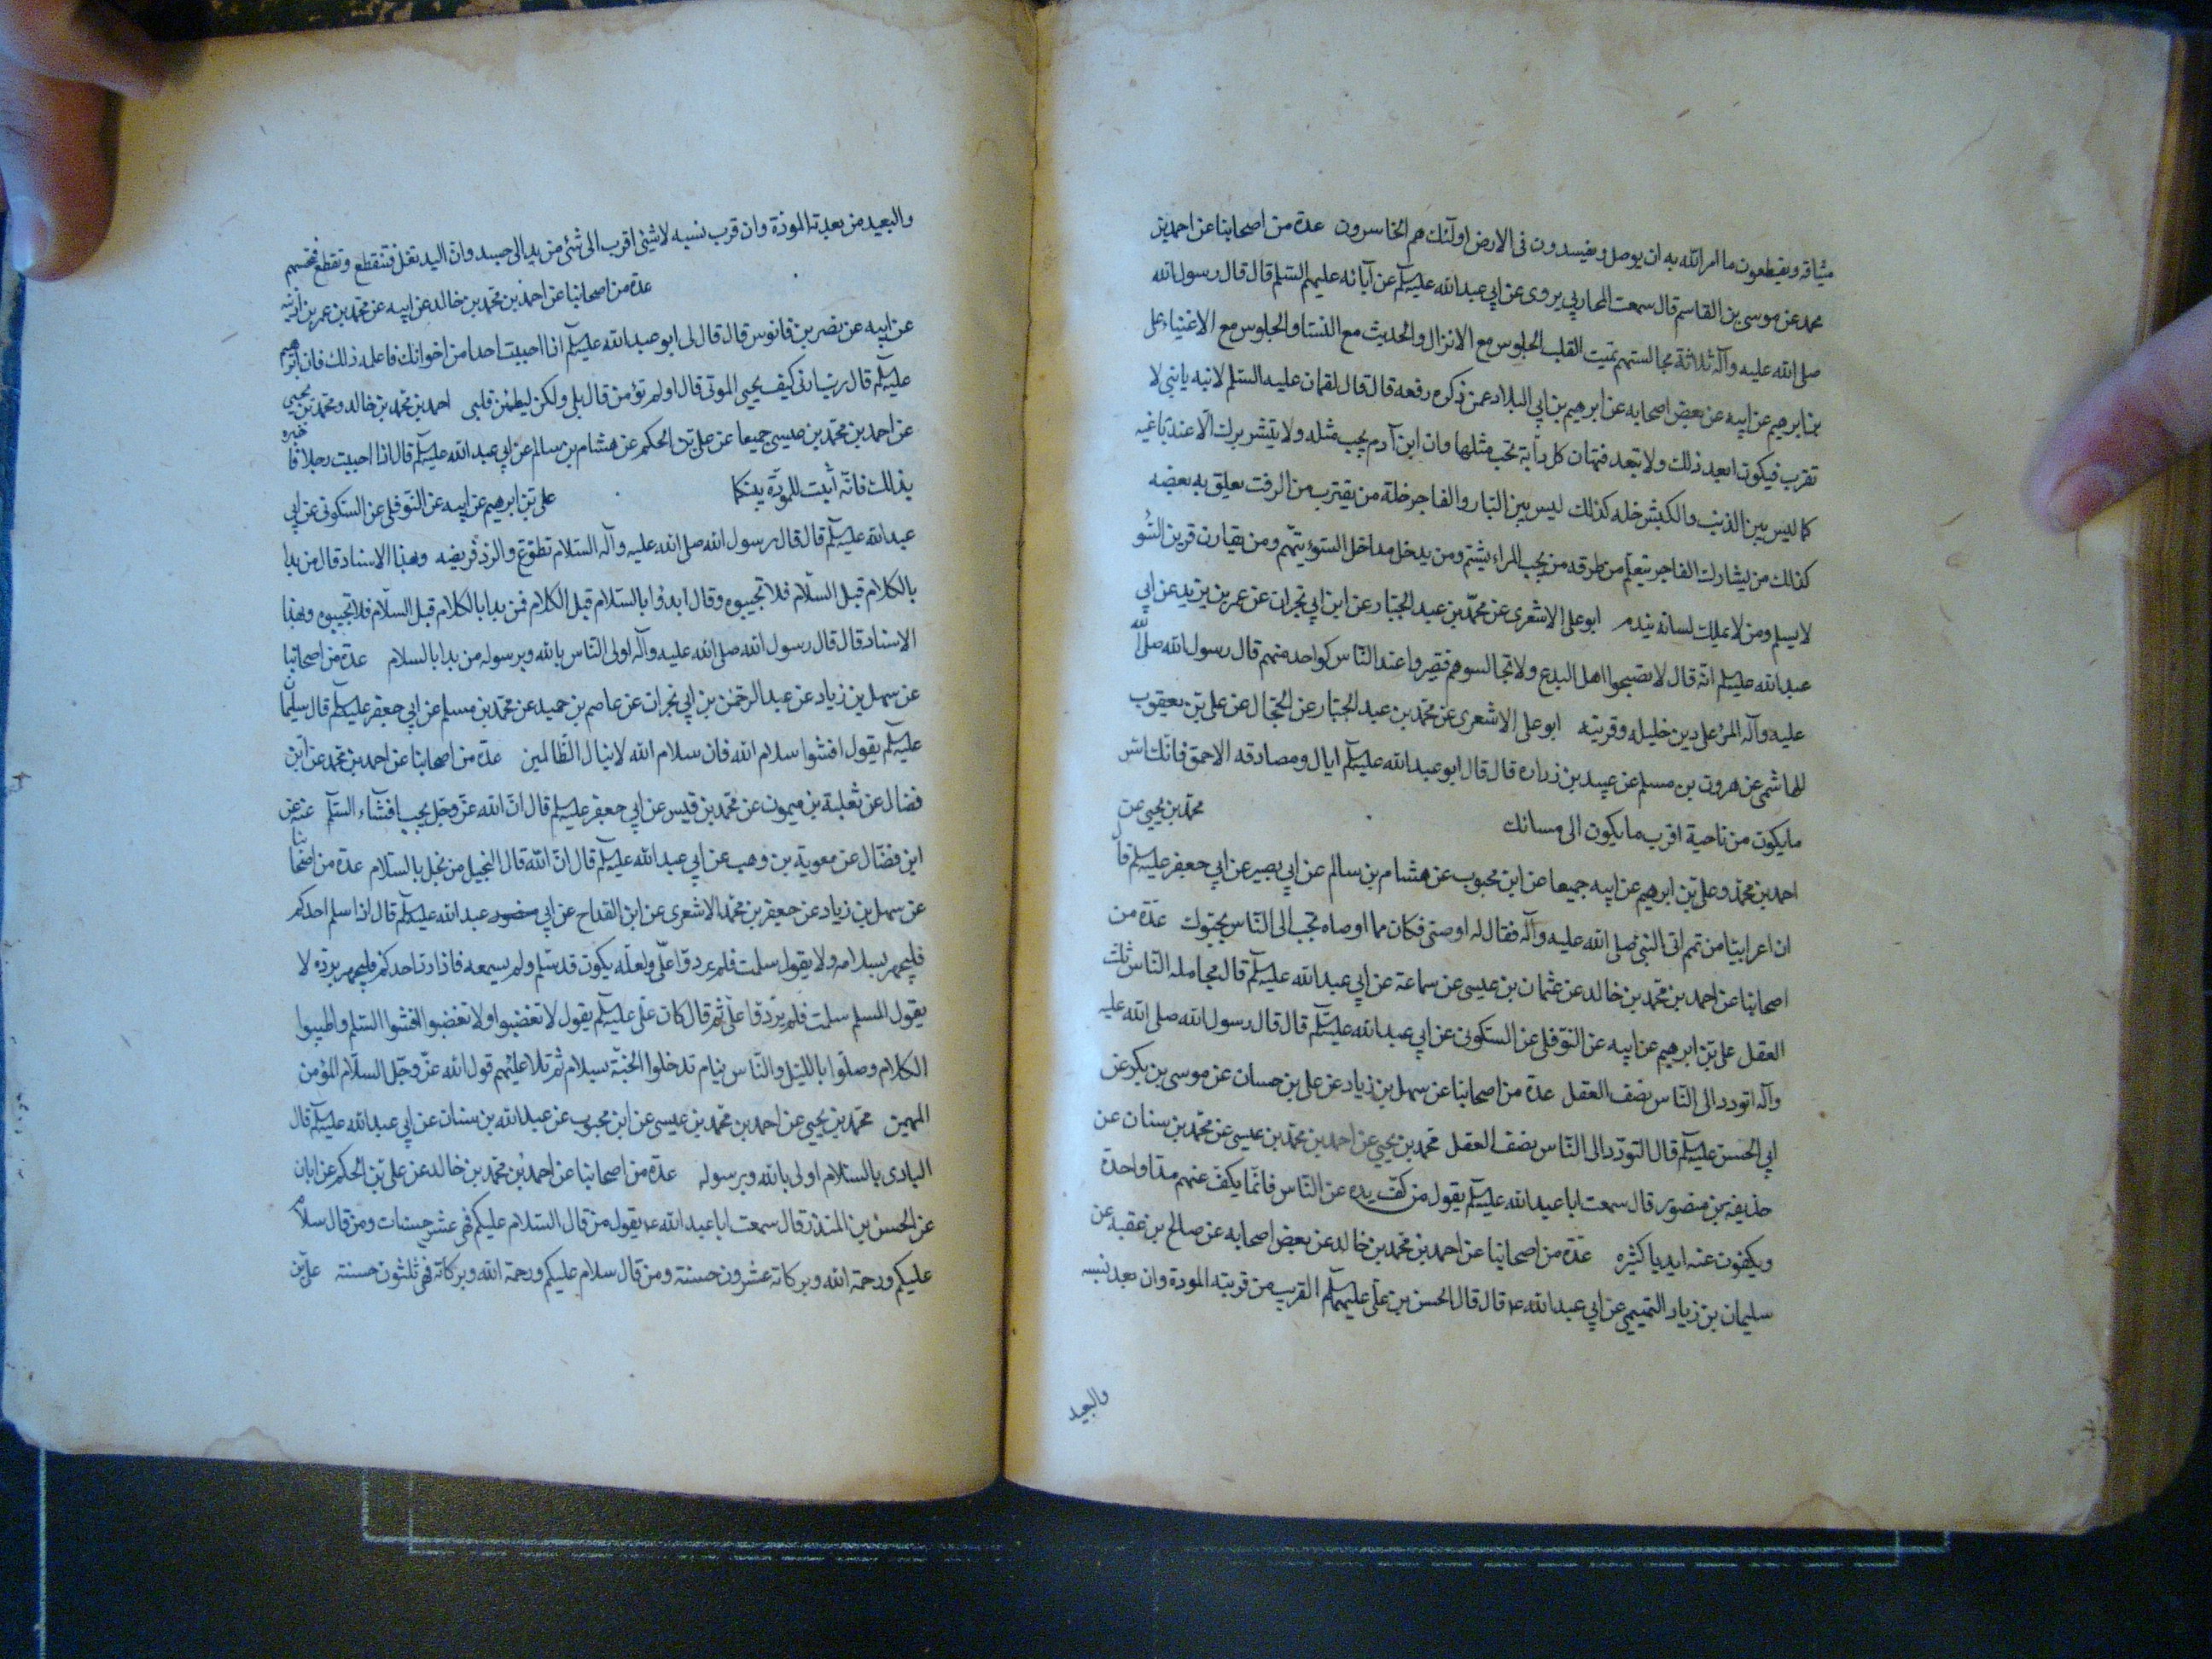 ميثاقه ويقطعون ما امر الله به ان يوصل ويفسدون فى الارض اولئك هم الخاسرون عدة من اصحابنا عن احمد بن
محمد عن موسى بن القاسم قال سمعت المحاربي يروى عن ابي عبد الله عليه السلم عن آبائه عليهم السلم قال قال رسول الله
صلى الله عليه وآله ثلاثة مجالستهم تميت القلب الجلوس مع الانزال والحديث مع النسا والجلوس مع الاغنياء على
بن ابرهيم عن ابيه عن بعض اصحابه عن ابرهيم بن ابي البلاد عمن ذكره رفعه قال قال لقمان عليه السلم لابنه يا بني لا
تقرب فيكون ابعد ذلك ولا تبعد فتهان كل دابة تحب مثلها وان ابن آدم يحب مثله ولا تنشر برك الا عند باغيه
كما ليس بين الذئب والكبش خله كذلك ليس بين البار والفاجر خلة من يقترب من الزفت يعلق به بعضه
كذلك من يشارك الفاجر يتعلم من طرقه من يحب المراء يشتم ومن يدخل مداخل السوء يتهم ومن يقارن قرين السو
لا يسلم ومن لا يملك لسانه يندم ابو على الاشعرى عن محمد بن عبد الجبار عن ابن ابي نجران عن عمر بن يزيد عن ابي
عبد الله عليه السلم انه قال لا تصبحوا اهل البدع ولا تجالسوهم فتصيروا عند الناس كواحد منهم قال رسول الله صلى الله
عليه وآله المرء على دين خليله وقرينه ابو على الاشعرى عن محمد بن عبد الجبار عن الحجال عن على بن يعقوب
الهاشمى عن هرون بن مسلم عن عبيد بن زراره قال قال ابو عبد الله عليه السلم اياك ومصادقه الاحمق فانك اسر
ما يكون من ناحية اقرب ما يكون الى مساتك محمد بن يحيى عن
احمد بن محمد وعلى بن ابرهيم عن ابيه جميعا عن ابن محبوب عن هشام بن سالم عن ابي بصير عن ابي جعفر عليه السلم قال
ان اعرابيا من تميم اتى النبي صلى الله عليه وآله فقال له اوصنى فكان مما اوصاه تحبب الى الناس يحبوك عدة من
اصحابنا عن احمد بن محمد بن خالد عن عثمان بن عيسى عن سماعة عن ابي عبد الله عليه السلم قال مجامله الناس ثلث
العقل على بن ابرهيم عن ابيه عن النوفلى عن السكونى عن ابي عبد الله عليه السلم قال قال رسول الله صلى الله عليه
وآله اتودد الى الناس نصف العقل عدة من اصحابنا عن سهل بن زياد عن على بن حسان عن موسى بن بكر عن
ابي الحسن عليه السلم قال التودد الى الناس نصف العقل محمد بن يحيى عن احمد بن محمد بن عيسى عن محمد بن سنان عن
حذيفه بن منصور قال سمعت ابا عبد الله عليه السلم يقول من كف يده عن الناس فانما يكف عنهم يدا واحدة
ويكفون عنه ايديا كثيره عدة من اصحابنا عن احمد بن محمد بن خالد عن بعض اصحابه عن صالح بن عقبه عن
سليمان بن زياد التميمى عن ابي عبد الله ع قال قال الحسن بن على عليهما السلم القريب من قربته المودة وان بعد نسبه
والبعيد
والبعيد من بعدته المودة وان قرب نسبه لا شيئ اقرب الى شئ من يد الى جسد وان اليد تغل فتقطع وتقطع فتحسم
عدة من اصحابنا عن احمد بن محمد بن خالد عن ابيه عن محمد بن عمر بن اذينه
عن ابيه عن نصر بن قابوس قال قال لى ابو عبد الله عليه السلم اذا احببت احدا من اخوانك فاعلمه ذلك فان ابرهيم
عليه السلم قال رب ارنى كيف يحيى الموتى قال اولم تؤمن قال بلى ولكن ليطمئن قلبى احمد بن محمد بن خالد ومحمد بن يحيى
عن احمد بن محمد بن عيسى جميعا عن على بن الحكم عن هشام بن سالم عن ابي عبد الله عليه السلم قال اذا احببت رجلا فاخبره
بذالك فانه اثبت للمودة بينكما على بن ابرهيم عن ابيه عن النوفلى عن السكونى عن ابي
عبد الله عليه السلم قال قال رسول الله صلى الله عليه وآله السلام تطوع والرد فريضه وهذا الاسناد قال من بدا
بالكلام قبل السلام فلا تجيبوه وقال ابدؤا بالسلام قبل الكلام فمن بدا بالكلام قبل السلام فلا تجيبوه وبهذا
الاسناد قال قال رسول الله صلى الله عليه وآله اولى الناس بالله وبرسوله من بدا بالسلام عدة من اصحابنا
عن سهل بن زياد عن عبد الرحمن بن ابي نجران عن عاصم بن حميد عن محمد بن مسلم عن ابي جعفر عليه السلم قال سليما
عليه السلم يقول افشوا سلام الله فان سلام الله لا ينال الظالمين عدة من اصحابنا عن احمد بن محمد عن ابن
فضال عن ثعلبة بن ميمون عن محمد بن قيس عن ابي جعفر عليه السلم قال ان الله عز وجل يحب افشاء السلم عنه عن
ابن فضال عن معوية بن وهب عن ابي عبد الله عليه السلم قال ان الله قال البخيل من بخل بالسلام عدة من اصحابنا
عن سهل بن زياد عن جعفر بن محمد الاشعرى عن ابن القداح عن ابي عبد الله عليه السلم قال اذا سلم احدكم
فليجهر بسلامه ولا يقول سلمت فلم يردوا على ولعله يكون قد سلم ولم يسمعه فاذا رد احدكم فليجهر برده لا
يقول المسلم سلمت فلم يردوا على ثم قال كان على عليه السلم يقول لا تغضبوا ولا تغضبوا افشوا السلم واطيبوا
الكلام وصلوا بالليل والناس نيام تدخلوا الجنة بسلام ثم تلا عليهم قول الله عز وجل السلام المؤمن
المهيمن محمد بن يحيى عن احمد بن محمد بن عيسى عن ابن محبوب عن عبد الله بن سنان عن ابي عبد الله عليه السلم قال
البادى بالسلام اولى بالله وبرسوله عدة من اصحابنا عن احمد بن محمد بن خالد عن على بن الحكم عن ابان
عن الحسن بن المنذر قال سمعت ابا عبد الله ع يقول من قال السلام عليكم فهى عشر حسنات ومن قال سلام
عليكم ورحمة الله وبركاته عشرون حسنة ومن قال سلام عليكم ورحمة الله وبركاته فهى ثلثون حسنة على بن